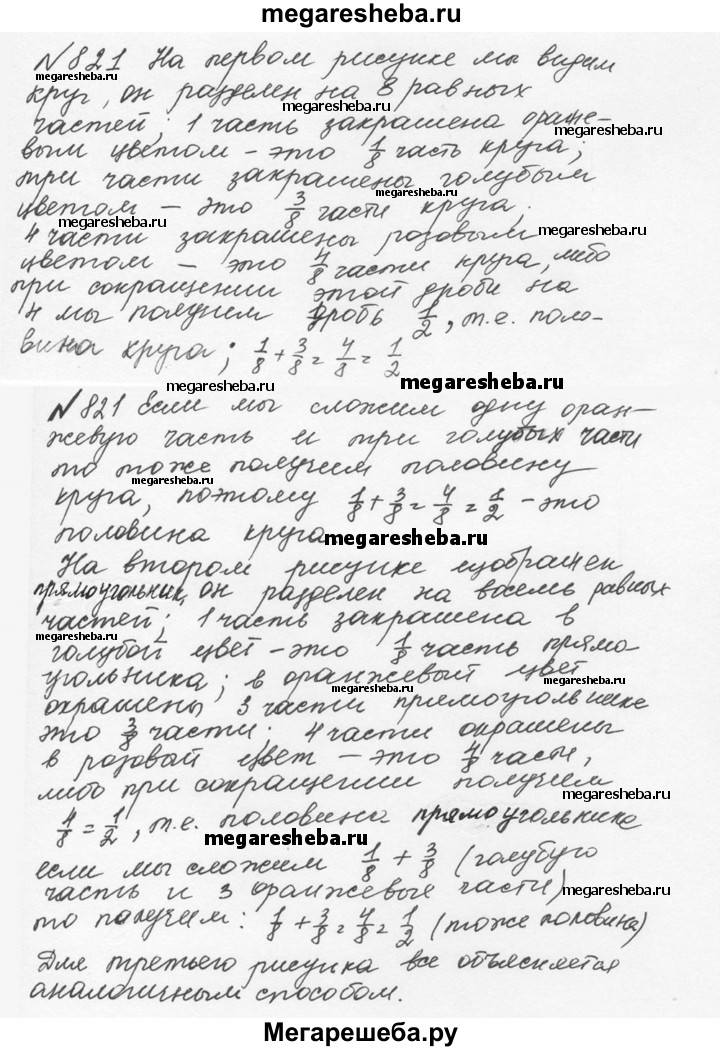 megaresheba.ru
№821 На первом рисунке мы видим
megaresheba.ru
круг, он разделен на 8 равных
megaresheba.ru
частей; 1 часть закрашена оранже-
megaresheba.ru
вым цветом – это 1/8 часть круга;
megaresheba.ru
три части закрашены голубым
megaresheba.ru
цветом – это 3/8 части круга;
megaresheba.ru
4 части закрашены розовым
megaresheba.ru
цветом – это 4/8 части круга, либо
при сокращении этой дроби на
4 мы получим дробь 1/2, т.е. поло-
вина круга; 1/8 + 3/8 = 4/8 = 1/2
megaresheba.ru
№821 Если мы сложим одну оран-
жевую часть и три голубых части
то тоже получим половину
megaresheba.ru
круга, поэтому 1/8 + 3/8 = 4/8 = 1/2 – это
половина круга
megaresheba.ru
На втором рисунке изображен
прямоугольник, он разделен на восемь равных
частей; 1 часть закрашена в
megaresheba.ru
голубой цвет – это 1/8 часть прямо
угольника; в оранжевый цвет
megaresheba.ru
окрашены 3 части прямоугольника
это 3/8 части; 4 части окрашены
в розовый цвет – это 4/8 части,
либо при сокращении получим
megaresheba.ru
4/8 = 1/2, т.е. половина прямоугольника
megaresheba.ru
если мы сложим 1/8 + 3/8 (голубую
часть и 3 оранжевые части)
megaresheba.ru
то получим: 1/8 + 3/8 = 4/8 = 1/2 (тоже половина)
Для третьего рисунка все объясняется
аналогичным способом.
Мегарешеба.ру